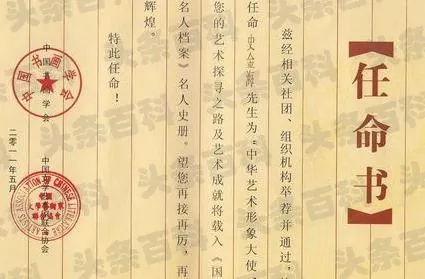 【任命书】
兹经相关社团、组织机构举荐并通过，
任命 先生为“中华艺术形象大使
您的艺术探寻之路及艺术成就将载入《国
名人档案》名人史册。望您再接再厉，再
辉煌。
特此任命！
中国书画学会
中国文学 协会
二〇一一年五月
中国书画学会
ASSOCIATION OF CHINESE LITERATURE
头条百科